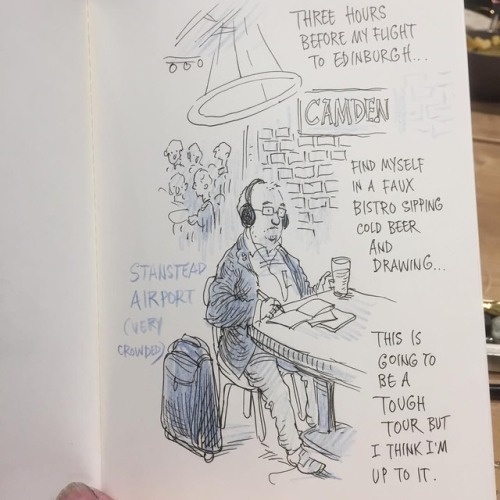 THREE HOURS
BEFORE MY FLIGHT
TO EDINBURGH...
CAMDEN
FIND MYSELF
IN A FAUX
BISTRO SIPPING
COLD BEER
AND
DRAWING...
STANSTEAD
AIRPORT
(VERY
CROWDED)
THIS IS
GOING TO
BE A
TOUGH
TOUR BUT
I THINK I'M
UP TO IT.